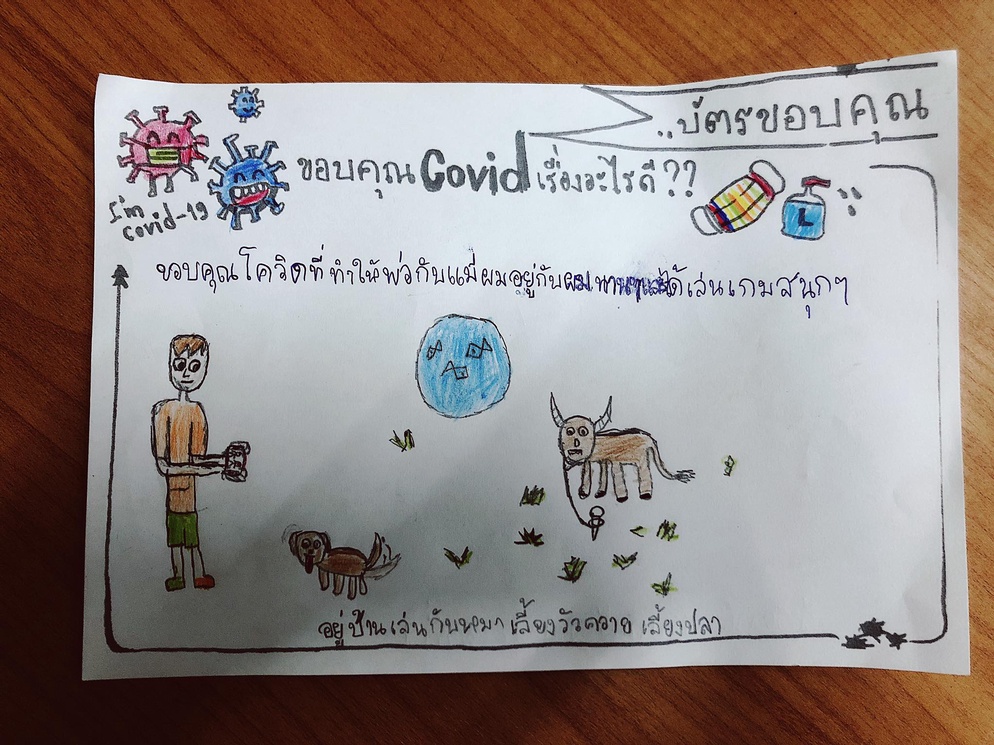 ..บัตรขอบคุณ
ขอบคุณ Covid เรื่องอะไรดี??
I'm
covid-19
L
ขอบคุณโควิดที่ ทำให้พ่อกับแม่ผมอยู่กับผม ได้เล่นเกมสนุกๆ
อยู่บ้าน เล่นกับหมา เลี้ยงวัวควาย เลี้ยงปลา